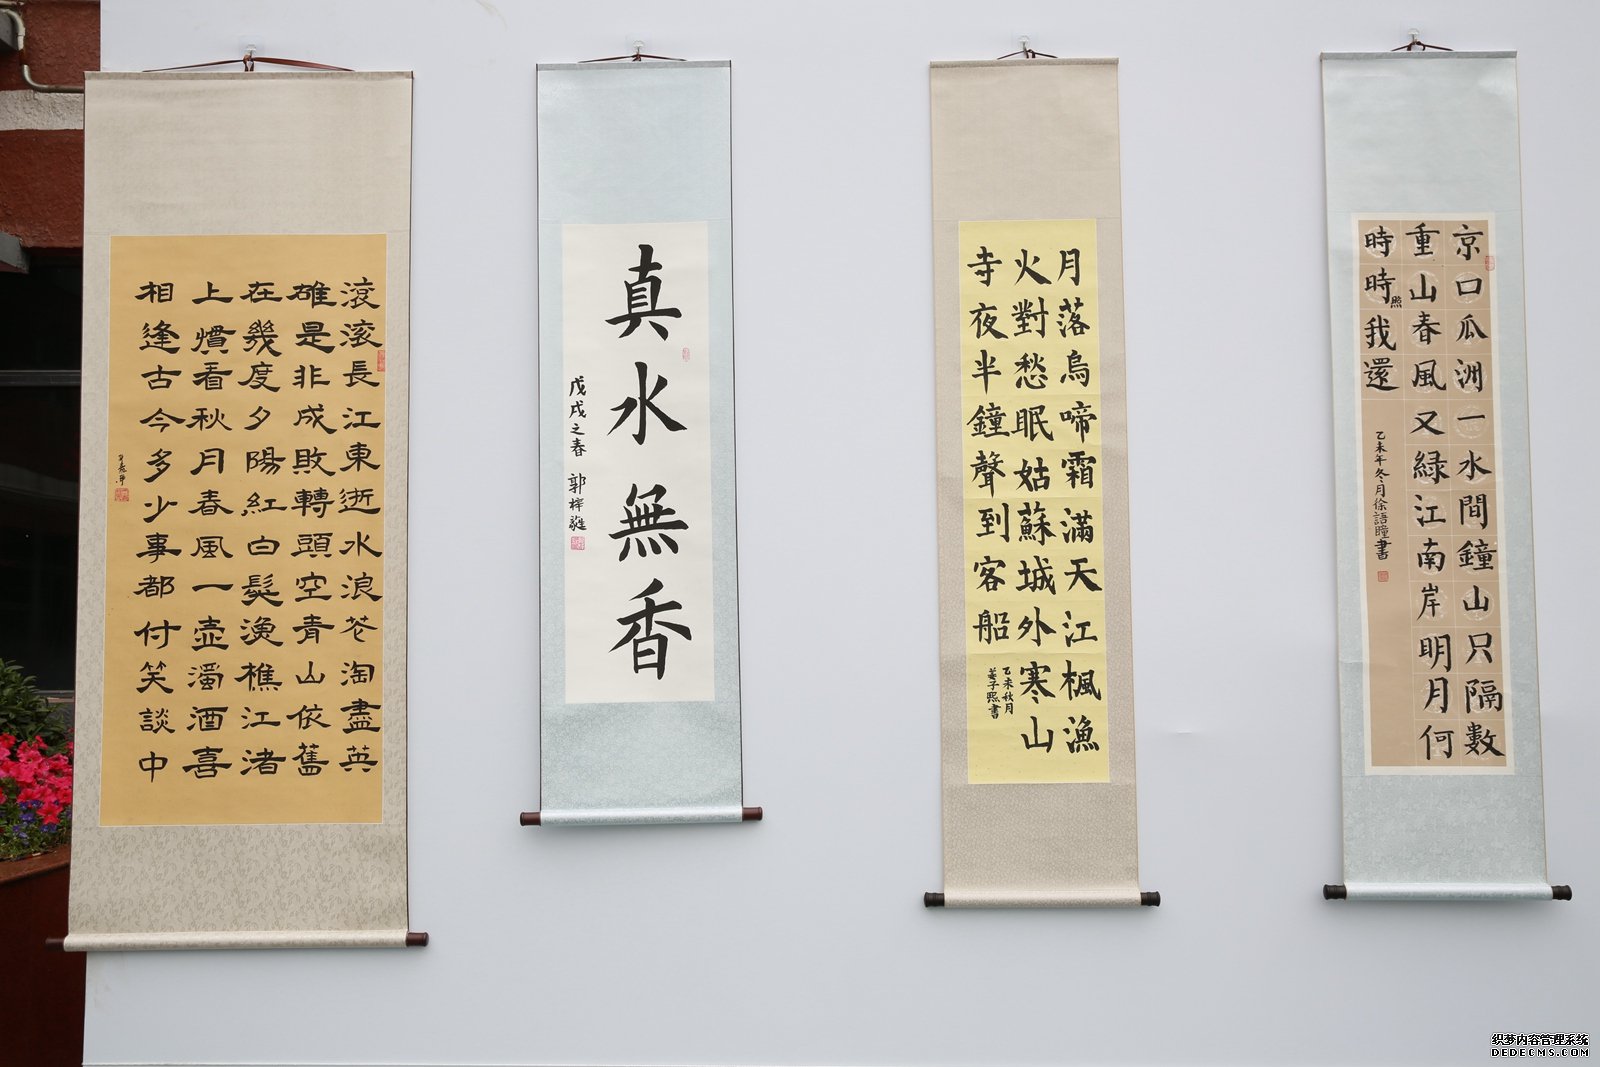 滚滚長江東逝水浪花淘盡英
雄是非成敗轉頭空青山依舊
在幾度夕陽紅白髮漁樵江渚
上慣看秋月春風一壺濁酒喜
相逢古今多少事都付笑談中
真水無香
戊戌之春 郭梓
月落烏啼霜滿天江楓漁
火對愁眠姑蘇城外寒山
寺夜半鐘聲到客船
乙未秋月
姜子熙書
京口瓜洲一水間鐘山只隔數
重山春風又緑江南岸明月何
時時照我還
乙未年冬月徐語瞳書
织梦内容管理系统
DEDECMS.COM